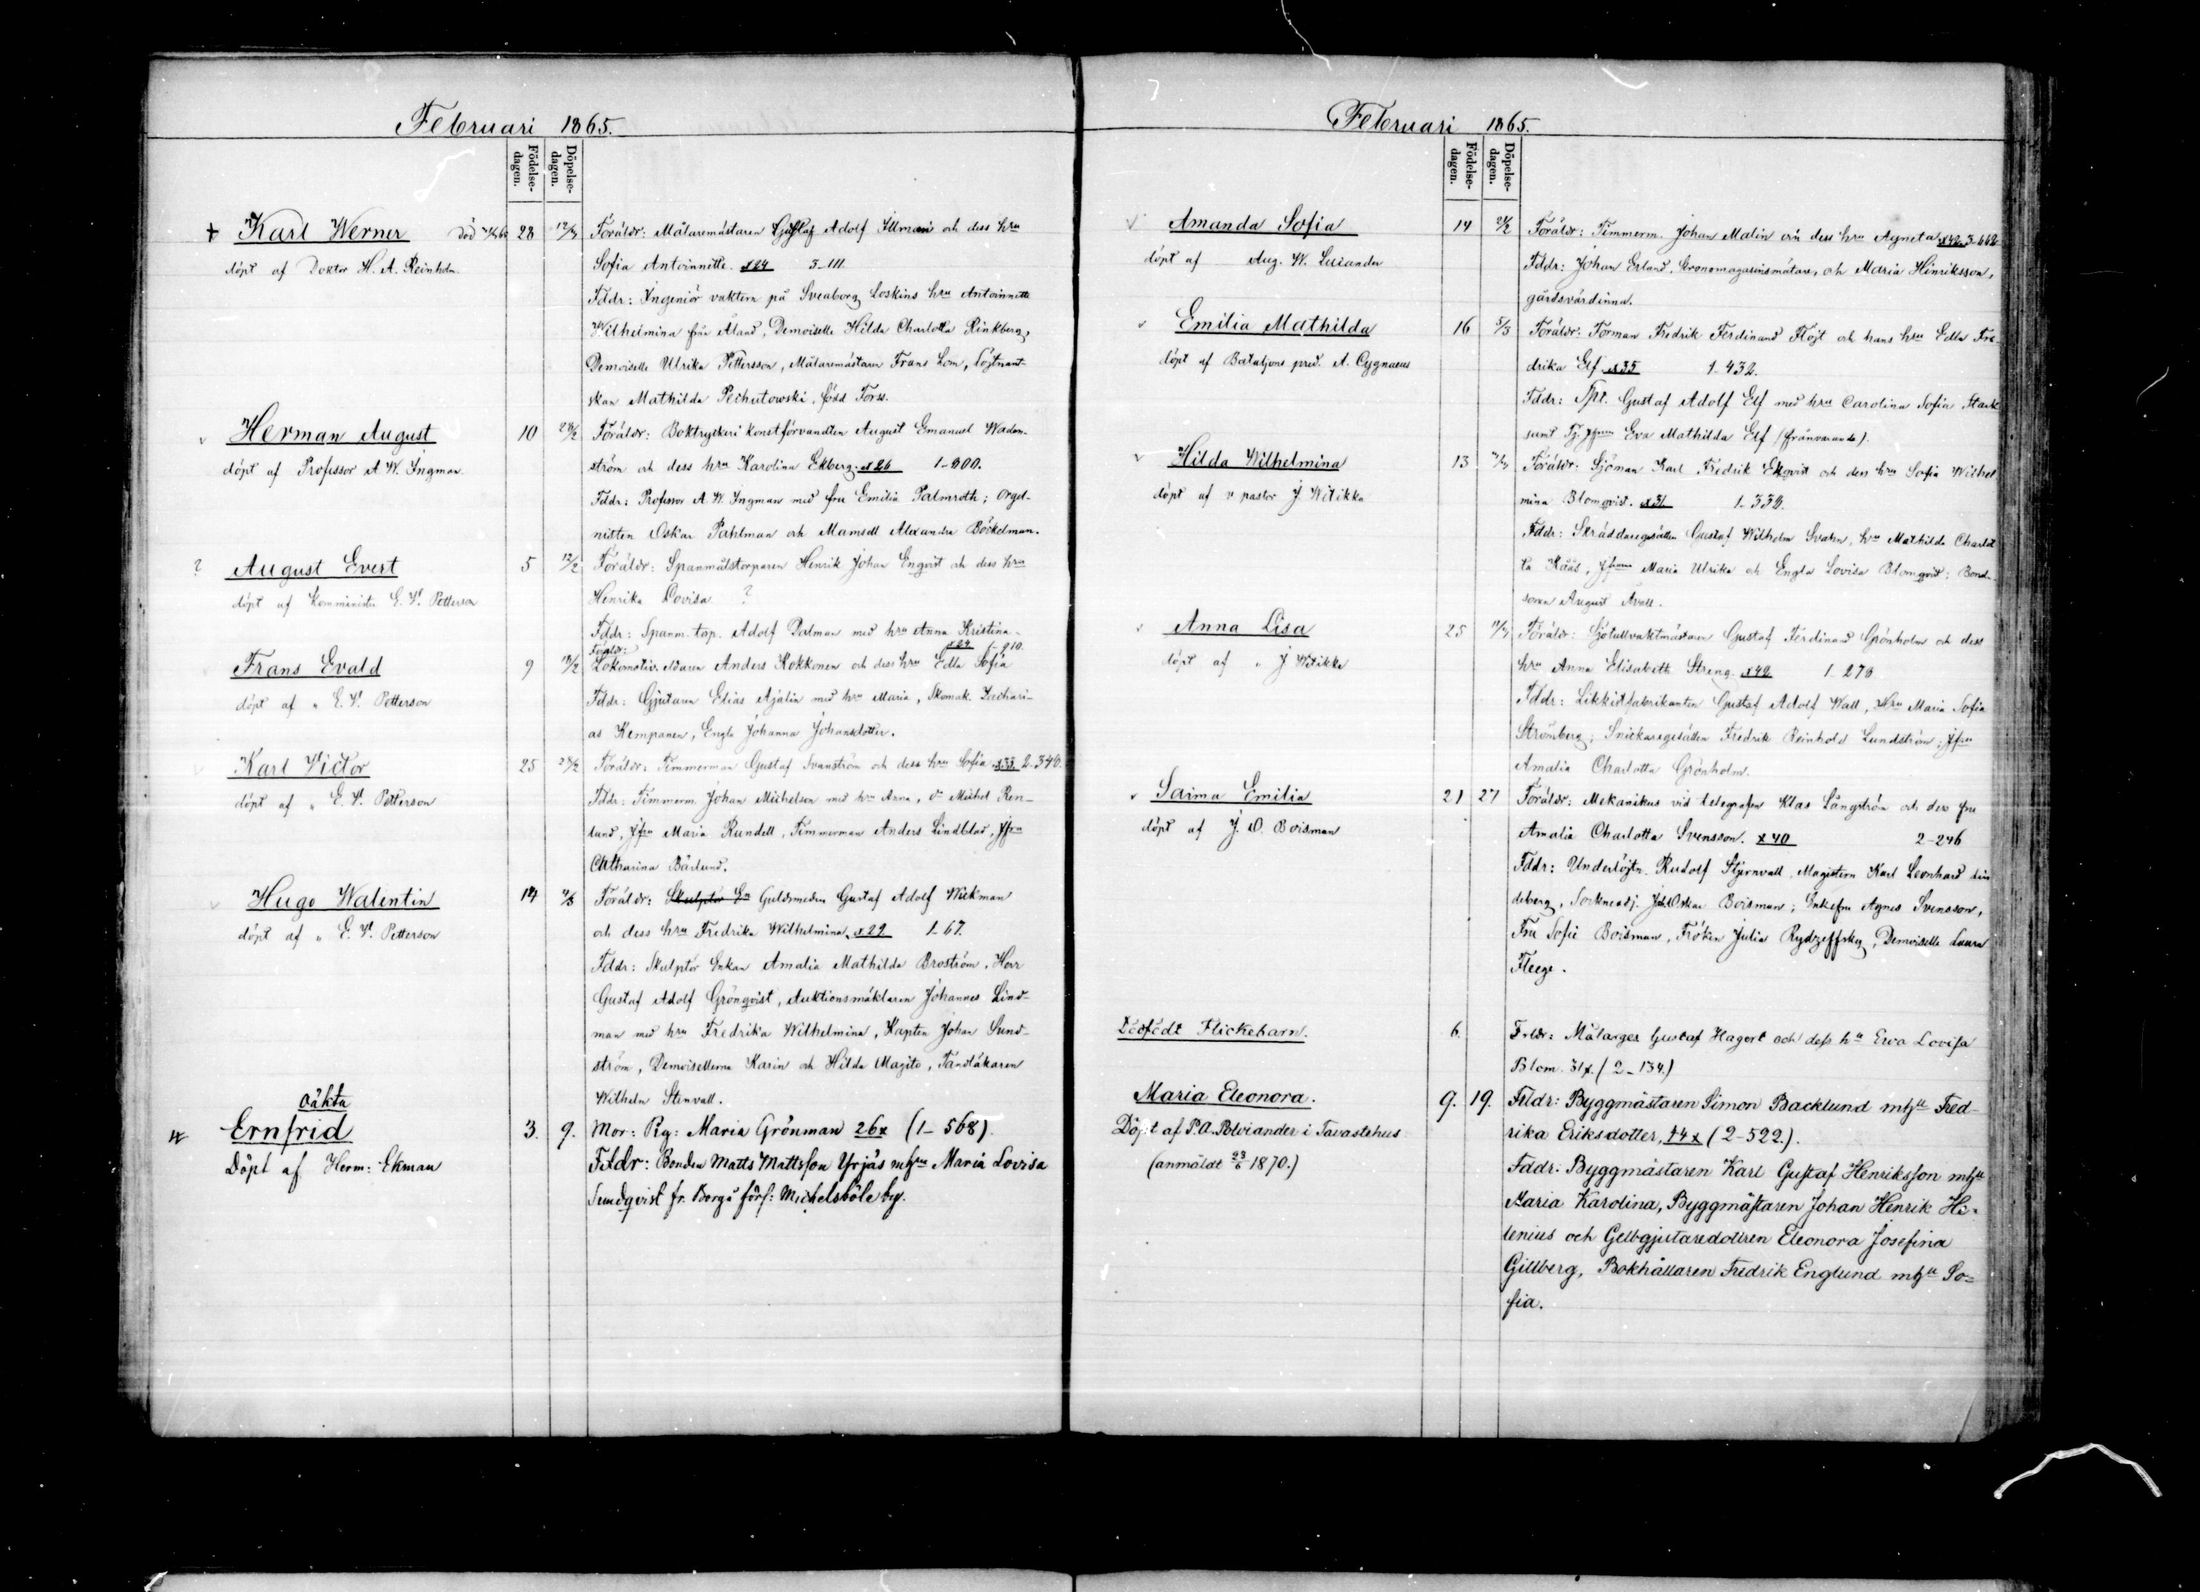 Februari 1865.
Födelse-dagen.
Döpelse-dagen.
Karl Werner död 28 12/3 Föräldr: Målaremästaren Gustaf Adolf Illman och dess hru
döpt af Doktor H. A. Reinholm. Sofia Antoinnette. x24 3-111
Fddr: Ingeniör vaktern på Sveaborg Loskins hru Antoinnette
Wilhelmina från Åland, Demoiselle Hilda Charlotta Rinkberg,
Demoiselle Ulrika Pettersson, Målaremästaren Frans Lom, Löjtnant-
skan Mathilda Pechutowski, född Forss.
Herman August 10 28/2 Föräldr: Boktryckeri konstförvandten August Emanuel Waden-
döpt af Professor A. W. Ingman. ström och dess hru Karolina Ekberg. x26 1-800.
Fddr: Professor A. W. Ingman med fru Emilia Palmroth; Orgel-
nisten Oskar Pahlman och Mamsell Alexandra Böckelman.
? August Evert 5 12/2 Föräldr: Spanmålstorparen Henrik Johan Engvist och dess hru
döpt af Komminister E. V. Petterson Henrika Lovisa ?
Fddr: Spanm. torp. Adolf Dalman med hru Anna Kristina.
Föräldr: x24 1-910.
Frans Evald 9 19/2 Lokomotiv eldaren Anders Kokkonen och dess hru Edla Sofia
döpt af " E. V. Petterson Fddr: Gjutaren Elias Ajalin med hru Maria, Skomak. Zachari-
as Kempanen, Engla Johanna Johansdotter.
Karl Victor 25 28/2 Föräldr: Timmerman Gustaf Svanström och dess hru Sofia x33 2-340.
döpt af " E. V. Petterson Fddr: Timmerm. Johan Michelson med hru Anna, do Michel Ren-
lund, Jfru Maria Rundell, Timmerman Anders Lindblad, Jfru
Catharina Bärlund.
Hugo Walentin 14 /3 Föräldr: Guldsmeden Gustaf Adolf Wickman
döpt af " E. V. Petterson och dess hru Fredrika Wilhelmina x29 1-67.
Fddr: Skulptör Enkan Amalia Mathilda Broström, Herr
Gustaf Adolf Grönqvist, Auktionsmäklaren Johannes Lind-
man med hru Fredrika Wilhelmina, Kapten Johan Sund-
ström, Demoisellerna Karin och Hilda Magito, Tandläkaren
Wilhelm Stenvall.
Oäkta
Ernfrid 3. 9. Mor: Pig: Maria Grönman 26x (1-568).
Döpt af Herm: Ekman Fddr: Bonden Matts Mattsson Yrjäs m hru Maria Lovisa
Sundqvist fr. Borgå förs: Michelsböle by.
Februari 1865.
Födelse-dagen.
Döpelse-dagen.
Amanda Sofia 14 26/2 Föräldr: Timmerm. Johan Malin och dess hru Agneta x42 3-662
döpt af Aug. W. Lucander Fddr: Johan Erland, Kronomagasinsmätare, och Maria Hinriksson,
gårdsvärdinna.
Emilia Mathilda 16 5/3 Föräldr: Forman Fredrik Ferdinand Flöjt och hans hru Edla Fre
döpt af Bataljons pred. A. Cygnaeus drika Elf x35 1-432.
Fddr: Gustaf Adolf Elf med hru Carolina Sofia Stark
samt Eva Mathilda Elf (frånvarande).
Hilda Wilhelmina 13 Föräldr: Sjöman Karl Fredrik Ekqvist och dess hru Sofia Wilhel
döpt af v pastor J Witikka mina Blomqvist. x31 1-338.
Fddr: Skräddaregesällen Gustaf Wilhelm Svahn, hru Mathilda Charlot
ta Kääs, Jfrurna Maria Ulrika och Engla Lovisa Blomqvist; Bond-
sonen August Avell.
Anna Lisa 25 Föräldr: Sjötullvaktmästaren Gustaf Ferdinand Grönholm och dess
döpt af " J Witikka hru Anna Elisabeth Streng x42 1-278
Fddr: Likkistfabrikanten Gustaf Adolf Wall, Hru Maria Sofia
Strömberg; Snickaregesällen Fredrik Reinhold Lundström; Jfru
Amalia Charlotta Grönholm.
Saima Emilia 21 27 Föräldr: Mekanikus vid telegrafen Klas Långström och des fru
döpt af J. O. Boisman Amalia Charlotta Svensson. x40 2-246
Fddr: Underlöjtn. Rudolf Stjernvall, Magistern Karl Leonhard Lin
deberg, Sockneadj. Joh. Oskar Boisman; Enkefru Agnes Svensson,
Fru Sofie Boisman, Fröken Julia Rydzeffsky, Demoiselle Laura
Fleege.
Dödfödt Flickebarn. 6. Frldr: Målarges Gustaf Hagert och dess hu Eva Lovisa
Blom. 31x. (2-134.)
Maria Eleonora. 9. 19. Frldr: Byggmästaren Simon Backlund m hu Fred-
Döpt af P. A. Polviander i Tavastehus rika Eriksdotter, 44x (2-522).
(anmäldt 23/6 1870.) Fddr: Byggmästaren Karl Gustaf Henriksson m hu
Maria Karolina, Byggmästaren Johan Henrik Hi-
lenius och Gelbgjutaredottren Eleonora Josefina
Gillberg, Bokhållaren Fredrik Englund m hu So-
fia.